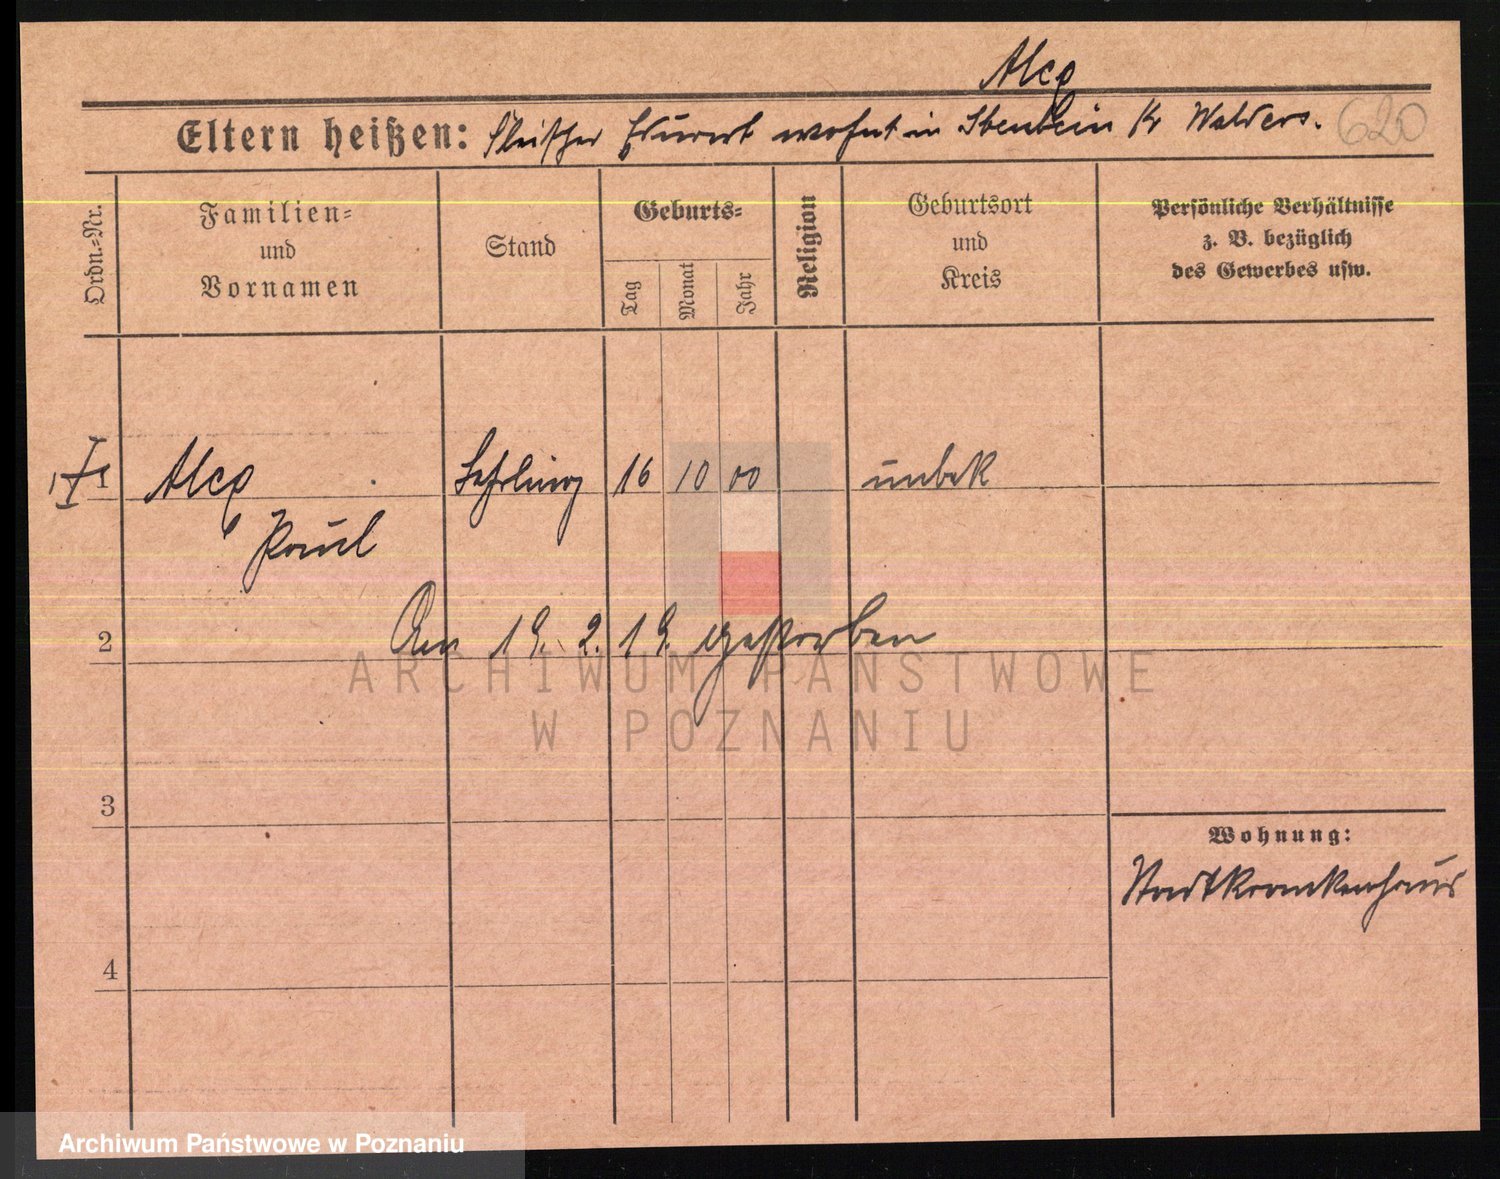 Alex
Eltern heißen: Fleischer Eduard wohnt in Kr Walders. 620
Ordn.-Nr.
Familien-
und
Vornamen
Stand
Geburts-
Tag
Monat
Jahr
Religion
Geburtsort
und
Kreis
Persönliche Verhältnisse
z. B. bezüglich
des Gewerbes usw.
1 Alex Lehrling 16 10 00 unbek
Paul
2 Am 19. 2. 19. gestorben
ARCHIWUM PAŃSTWOWE
W POZNANIU
3
Wohnung:
Stadtkrankenhaus
4
Archiwum Państwowe w Poznaniu